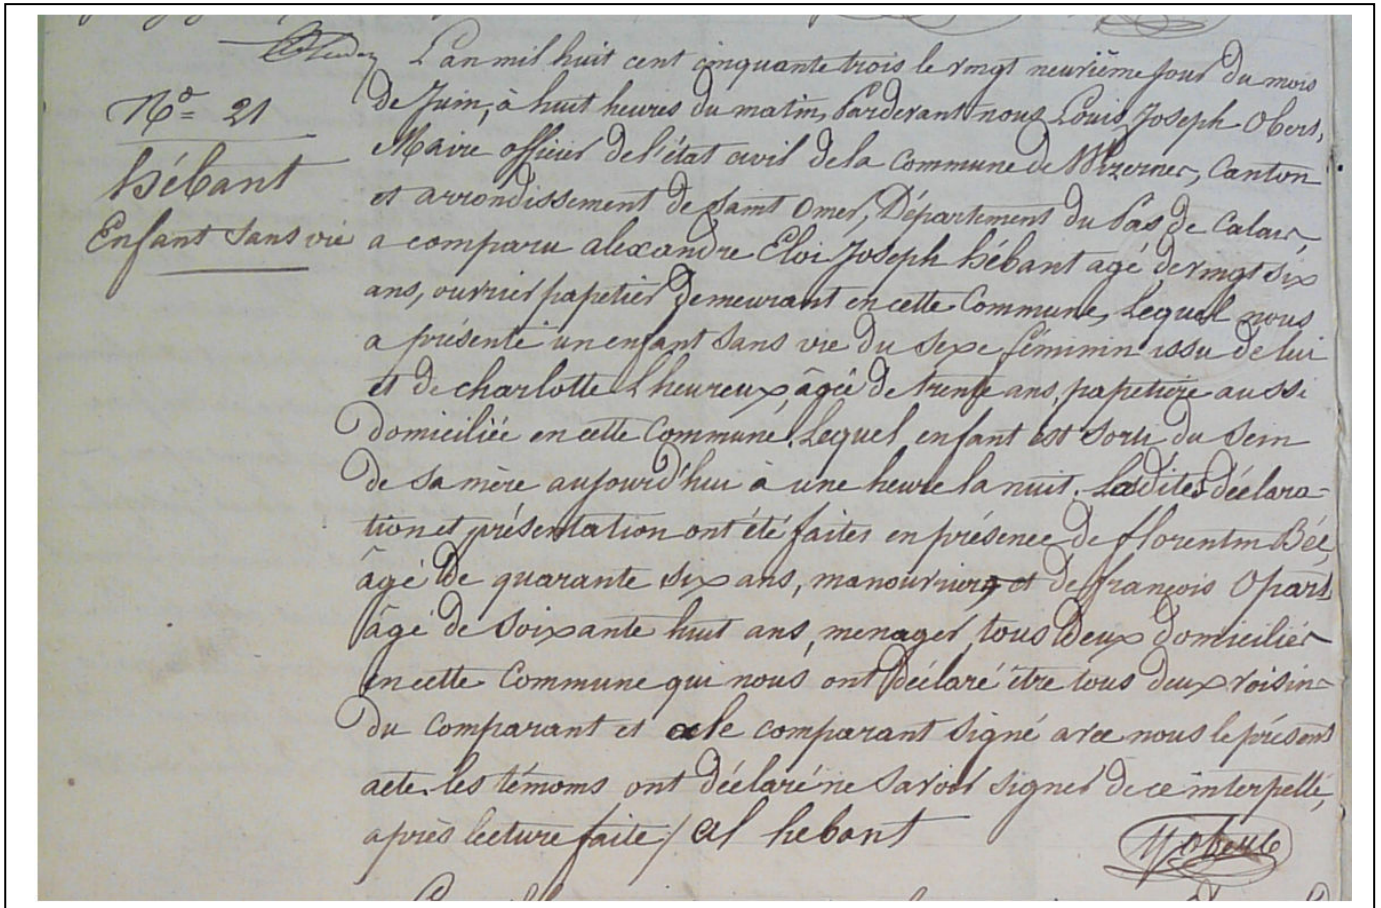 Nº 21
hébant
Enfant sans vie
L'an mil huit cent cinquante trois le vingt neuvième jour du mois
de Juin, à huit heures du matin, Pardevant nous Louis Joseph Obert,
Maire officier de l'état civil de la Commune de Wizernes, Canton
et arrondissement de Saint Omer, Département du Pas de Calais,
a comparu alexandre Eloi Joseph hébant agé de vingt six
ans, ouvrier papetier demeurant en cette Commune, Lequel nous
a présenté un enfant sans vie du sexe féminin issu de lui
et de charlotte Lheureux, âgée de trente ans, papetière aussi
domiciliée en cette Commune. Lequel enfant est sorti du sein
de sa mère aujourd'hui à une heure la nuit. Lesdites déclara-
tion et présentation ont été faites en présence de florentin Bée,
âgé de quarante six ans, manouvrier et de françois Opart
âgé de soixante huit ans, menager, tous deux domiciliés
en cette Commune qui nous ont déclaré être tous deux voisins
du comparant et a le comparant signé avec nous le présent
acte. les témoins ont déclaré ne savoir signer de ce interpellé,
après lecture faite / al hebant